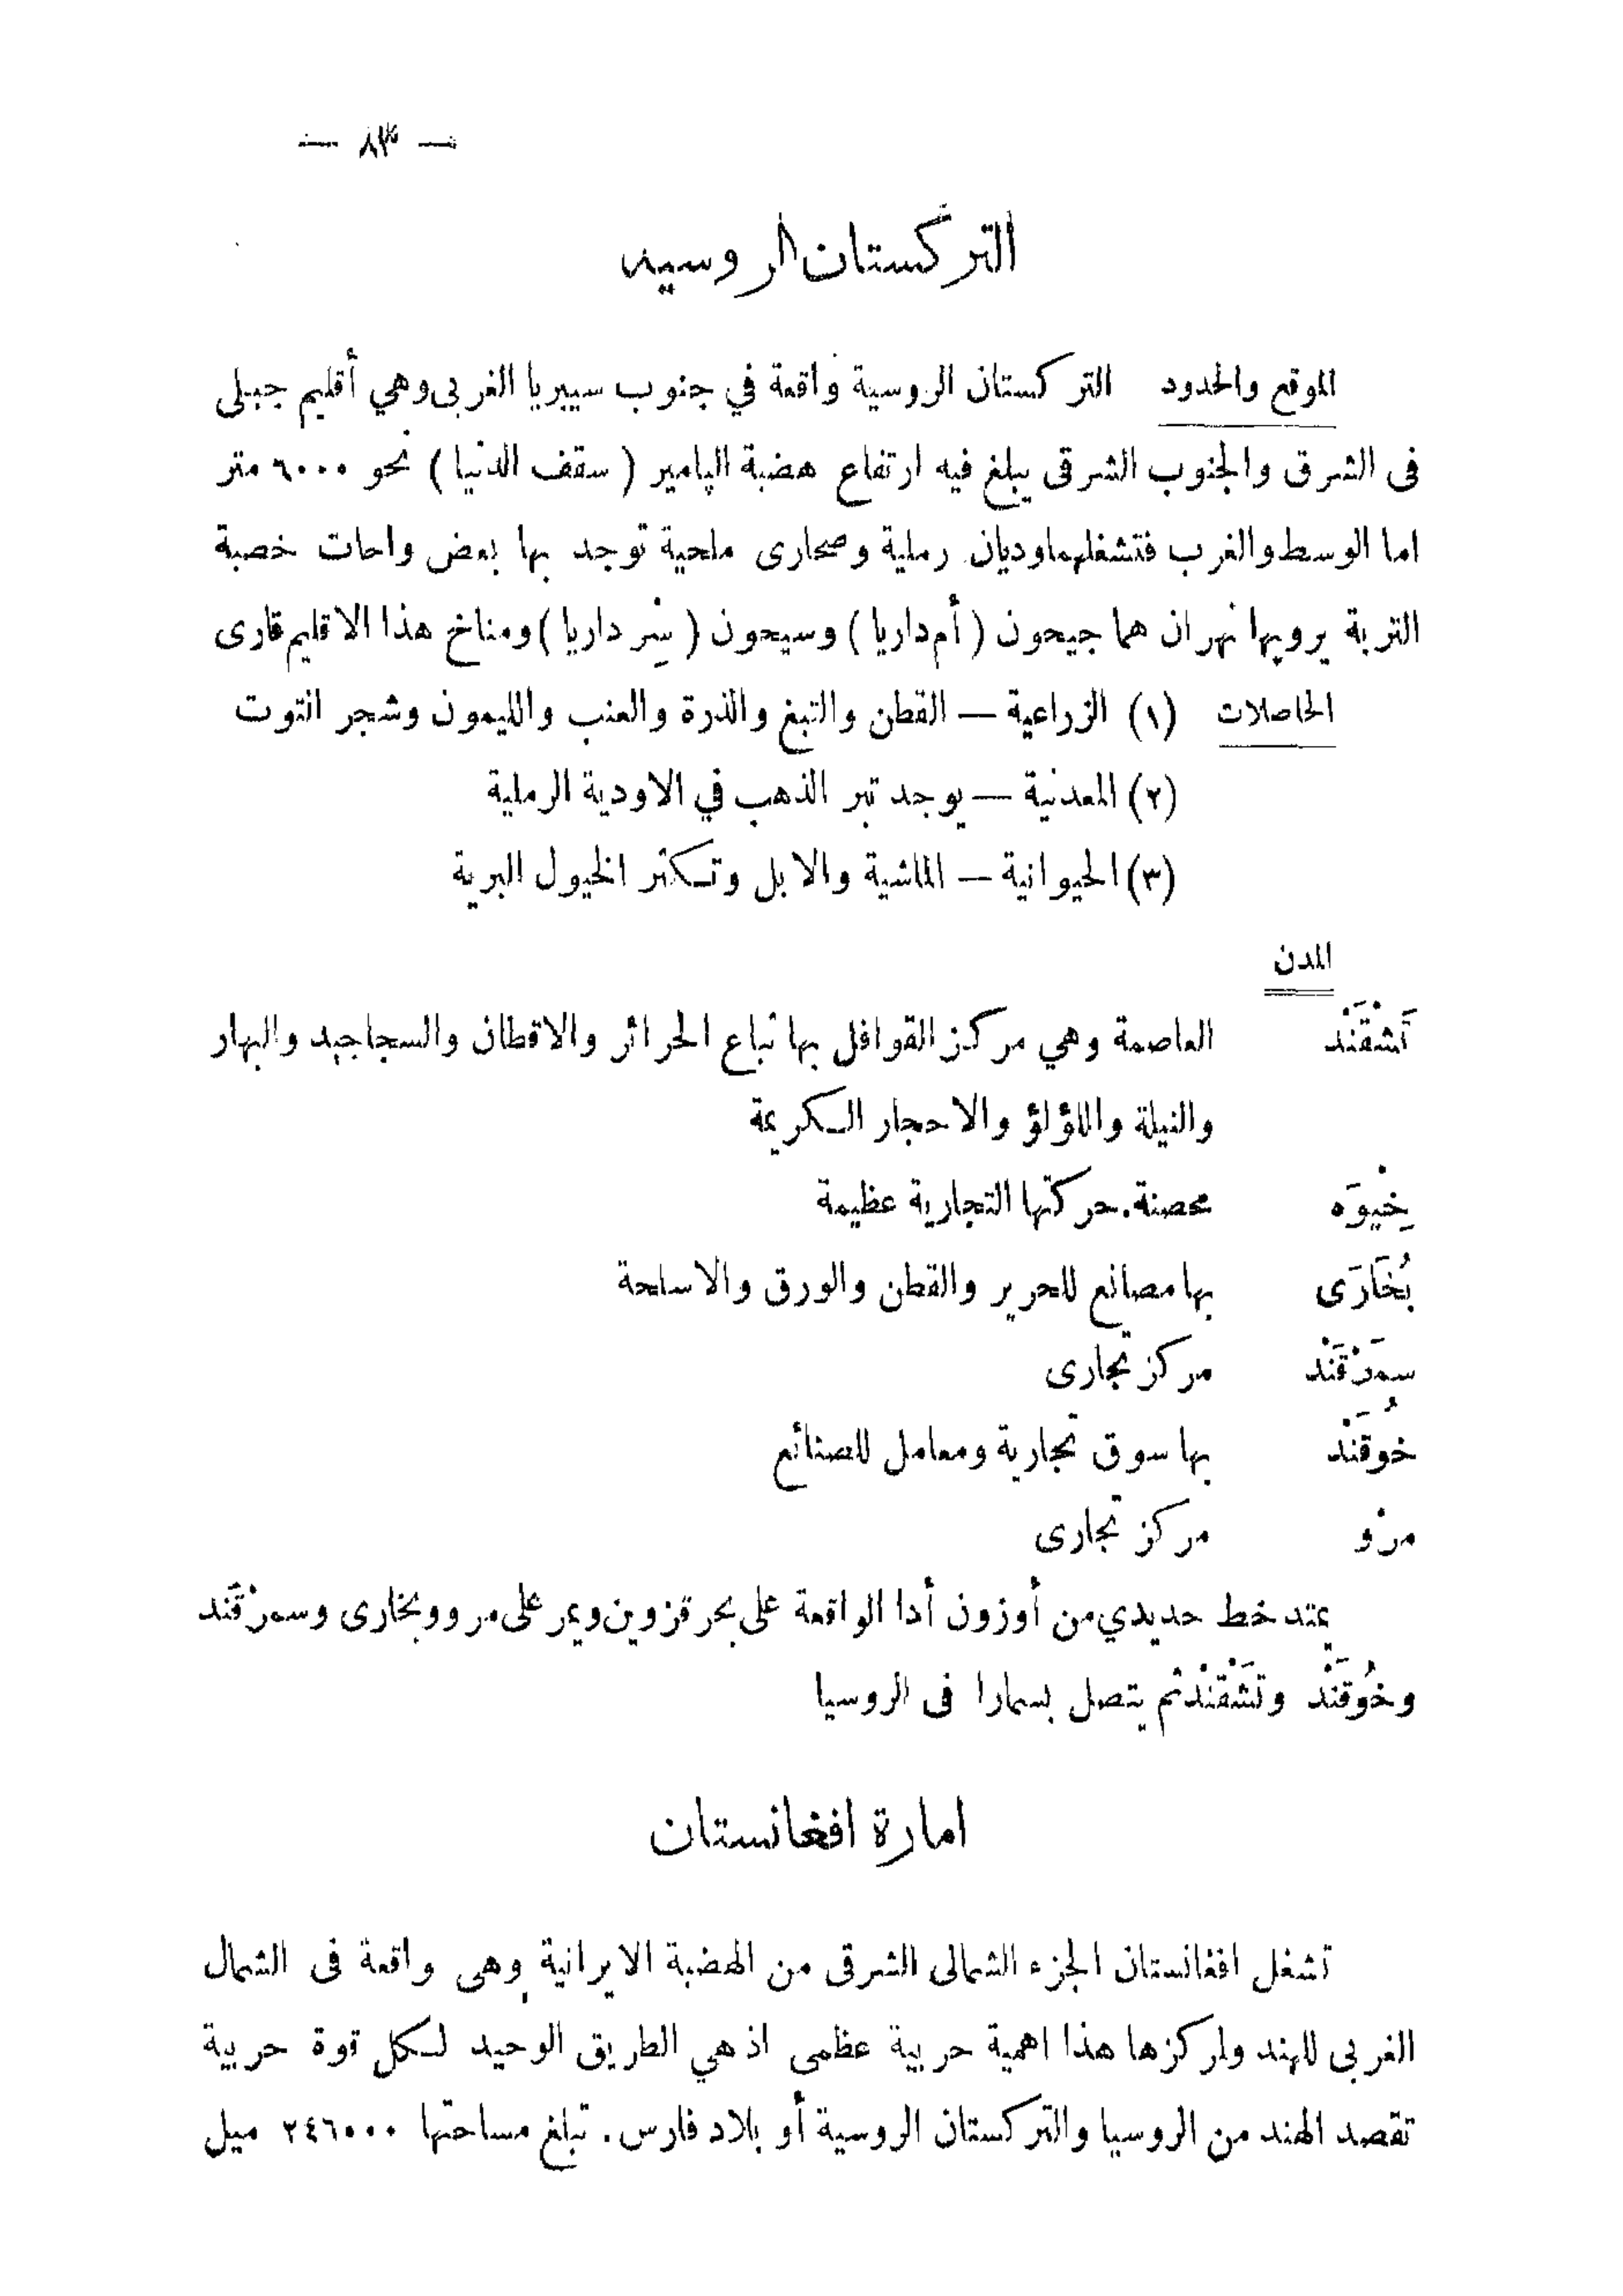 — ٨٣ —
التركستان الروسيه
الموقع والحدود التركستان الروسية واقعة في جنوب سيبيريا الغربى وهي أقليم جبلى
فى الشرق والجنوب الشرقى يبلغ فيه ارتفاع هضبة الپامير ( سقف الدنيا ) نحو ٦٠٠٠ متر
اما الوسط والغرب فتشغلهما وديان رملية وصحارى ملحية توجد بها بعض واحات خصبة
التربة يرويها نهران هما جيحون ( أم داريا ) وسيحون ( سِرْ داريا ) ومناخ هذا الاقليم قارى
الحاصلات (١) الزراعية — القطن والتبغ والذرة والعنب والليمون وشجر التوت
(٢) المعدنية — يوجد تبر الذهب في الاودية الرملية
(٣) الحيوانية — الماشية والابل وتكثر الخيول البرية
المدن
تَشْقَنْد العاصمة وهي مركز القوافل بها تباع الحرائر والاقطان والسجاجيد والبهار
والنيلة واللؤلؤ والاحجار الكريمة
خِيْوَه محصنة. حركتها التجارية عظيمة
بُخَارَى بها مصانع للحرير والقطن والورق والاسلحة
سمَرْقَنْد مركز تجارى
خُوقَنْد بها سوق تجارية ومعامل للصنائع
مرْو مركز تجارى
يمتد خط حديدي من أوزون أدا الواقعة على بحر قزوين ويمر على مرو وبخارى وسمرْقَند
وخُوقَنْد وتَشْقَنْد ثم يتصل بسمارا فى الروسيا
امارة افغانستان
تشغل افغانستان الجزء الشمالى الشرقى من الهضبة الايرانية وهى واقعة فى الشمال
الغربى للهند ولمركزها هذا اهمية حربية عظمى اذ هي الطريق الوحيد لكل قوة حربية
تقصد الهند من الروسيا والتركستان الروسية أو بلاد فارس. تبلغ مساحتها ٢٤٦٠٠٠ ميل